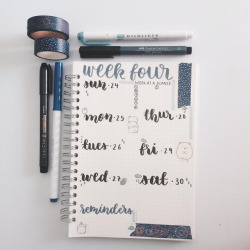 week four
WEEK AT A GLANCE
sun • 24
mon • 25
thur • 28
tues • 26
fri • 29
wed • 27
sat • 30
reminders